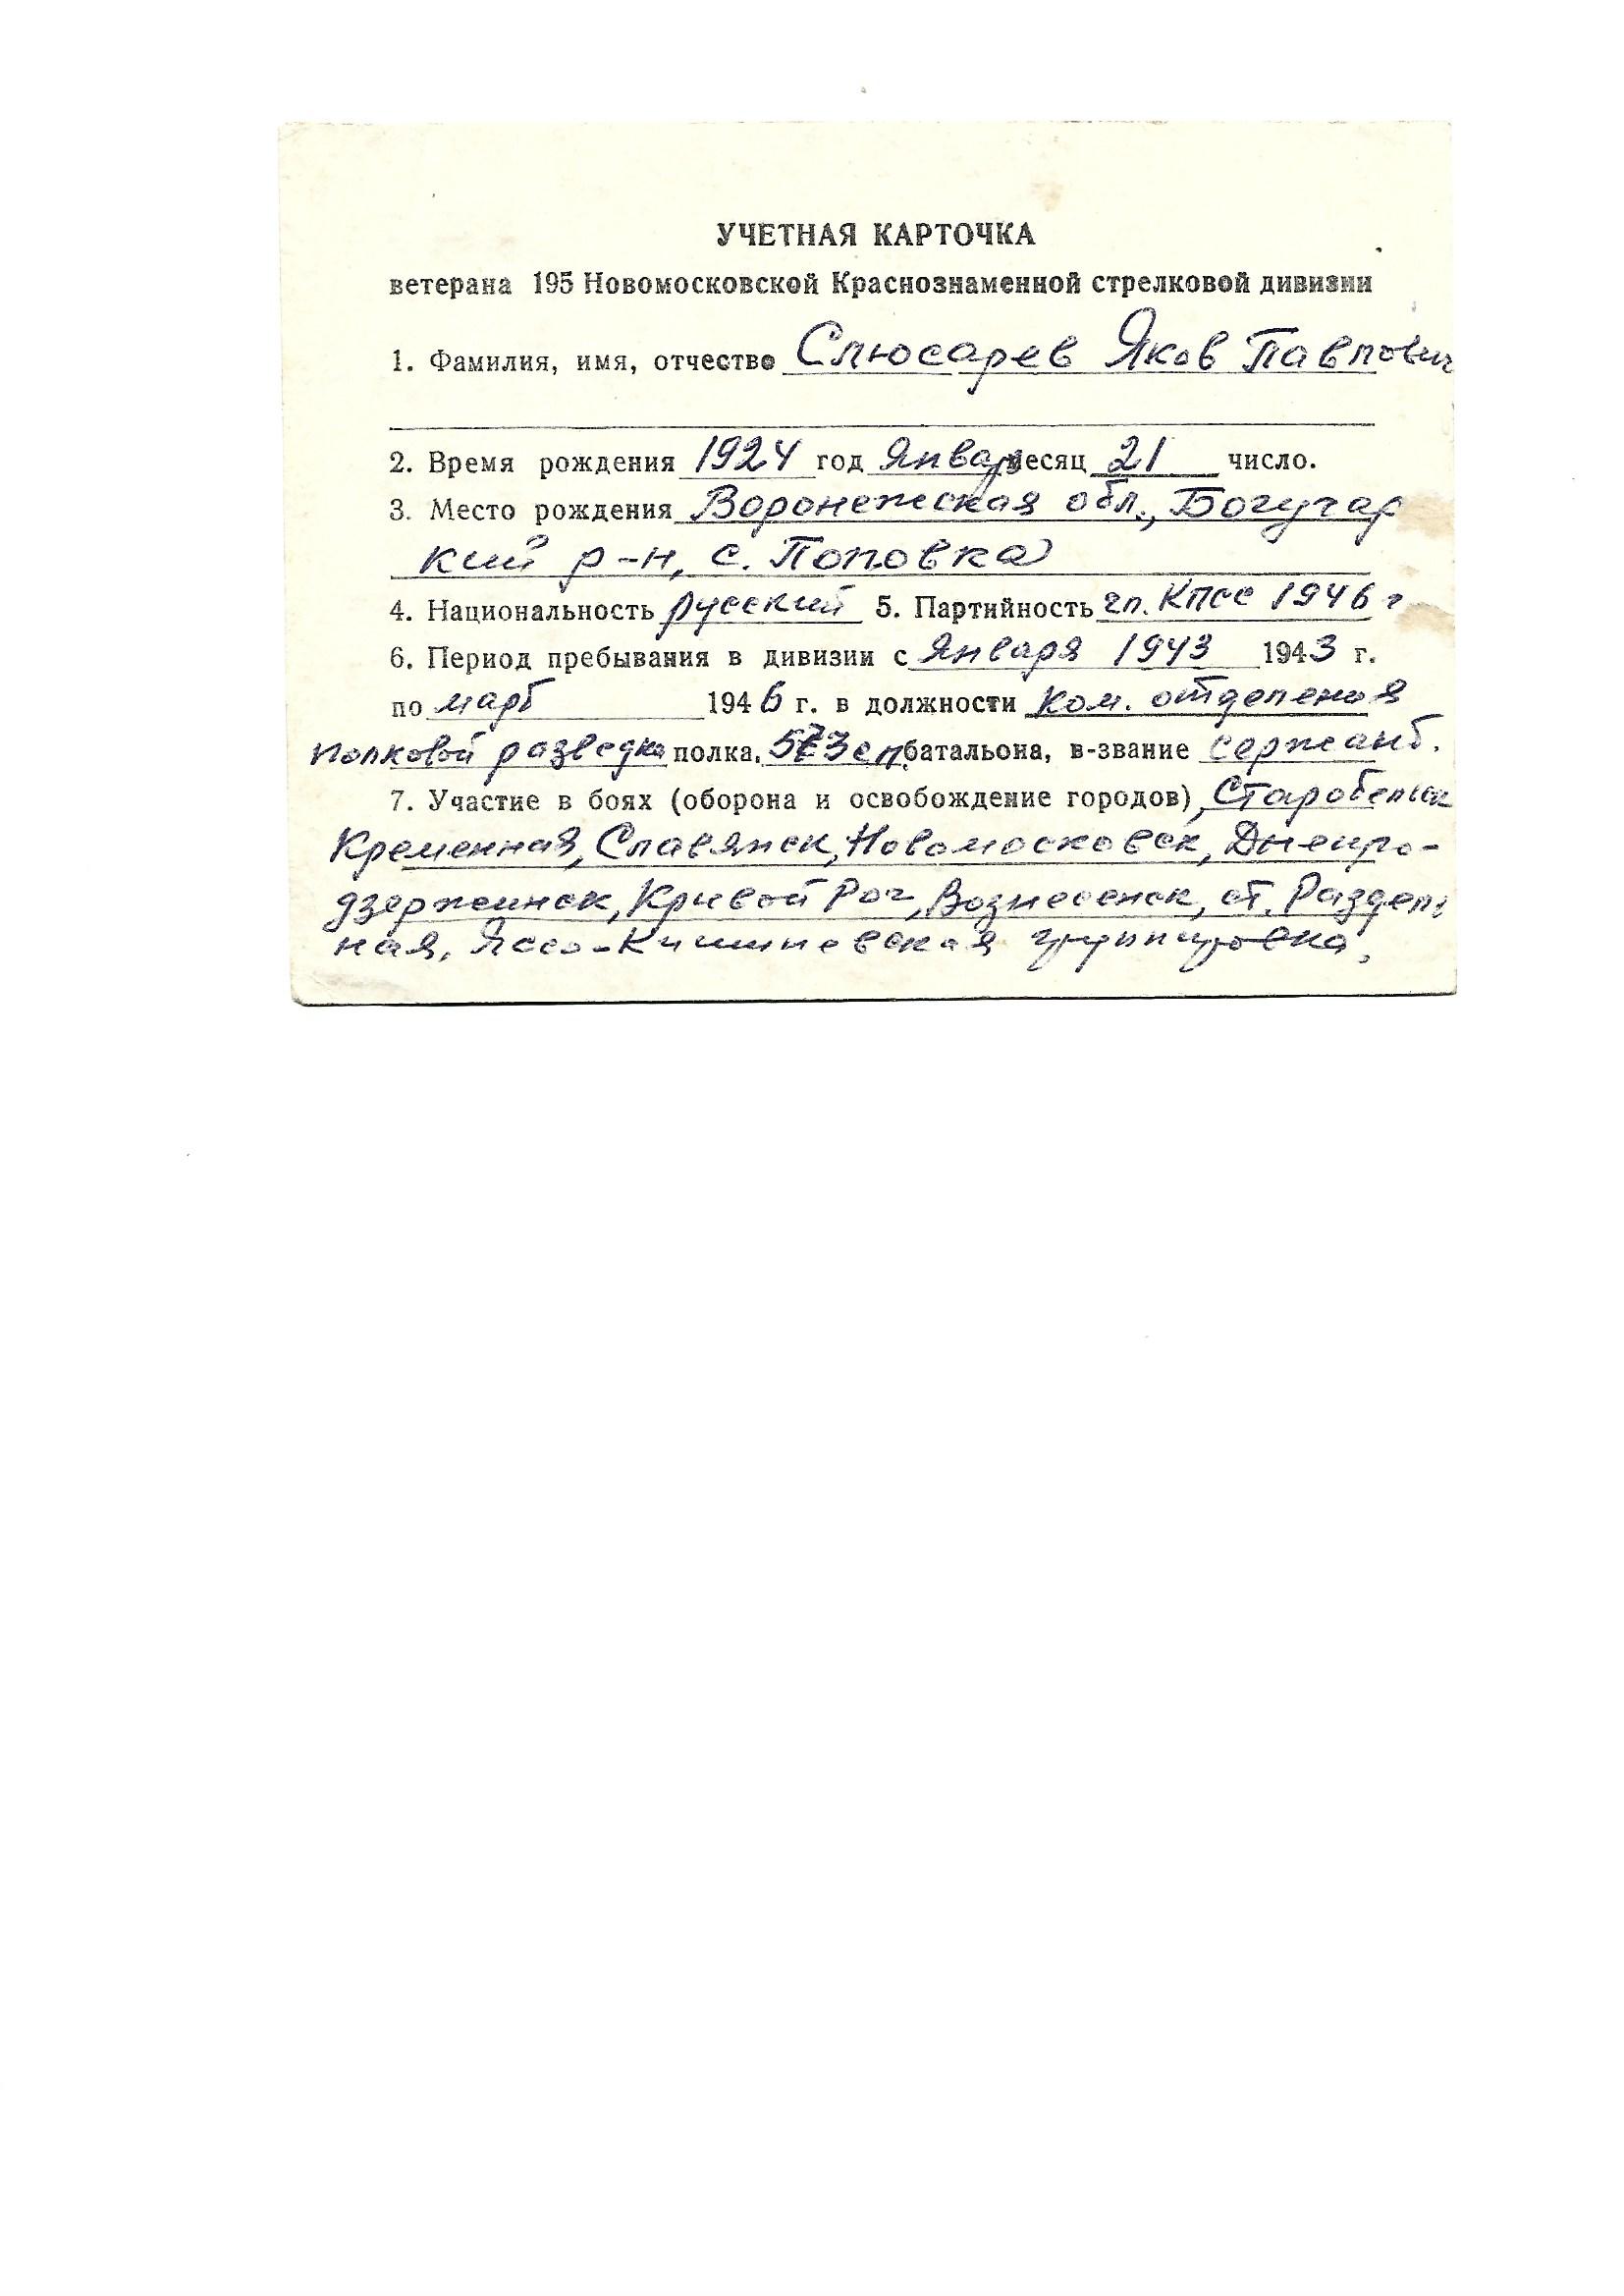 УЧЕТНАЯ КАРТОЧКА
ветерана 195 Новомосковской Краснознаменной стрелковой дивизии
1. Фамилия, имя, отчество Слюсарев Яков Павлович
2. Время рождения 1924 год Январь месяц 21 число.
3. Место рождения Воронежская обл., Богучар
кий р-н, с. Поповка
4. Национальность русский 5. Партийность чл. КПСС 1946 г
6. Период пребывания в дивизии с Января 1943 1943 г.
по март 1946 г. в должности ком. отделения
полковой разведки полка, 573 сп батальона, в-звание сержант.
7. Участие в боях (оборона и освобождение городов) Старобельск
Кременная, Славянск, Новомосковск, Днепро-
дзержинск, Кривой Рог, Вознесенск, ст. Раздель
ная, Ясско-Кишиневская группировка.